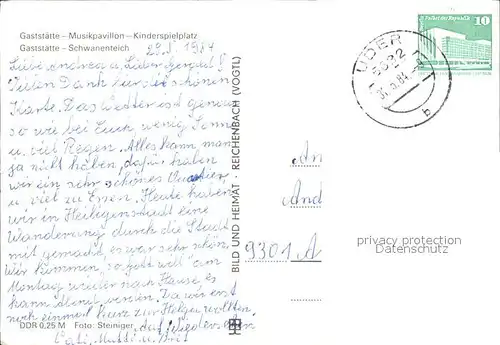 Gaststätte – Musikpavillon – Kinderspielplatz
Gaststätte – Schwanenteich
29.8. 1984
Liebe Andrea u. Lieber
Vielen Dank für die schönen
Karte. Das Wetter ist genau
so wie bei Euch, wenig Sonne
u. viel Regen. Alles kann man
ja nicht haben, dafür haben
wir ein sehr schönes Quartier
u. viel zu Essen. Heute haben
wir in Heiligenstadt eine
Wanderung durch die Stadt
mit gemacht, es war sehr schön.
Wir kommen "so Gott will" am
Montag wieder nach Hause, es
kann Abend werden. Da wir erst
noch einmal kurz zur Helga wollten.
auf Wiedersehen
Mutti u.
DDR 0,25 M Foto: Steiniger
BILD UND HEIMAT REICHENBACH (VOGTL)
Palast der Republik
10
UDER
5632
b
An
And
9301 A
privacy protection
Datenschutz